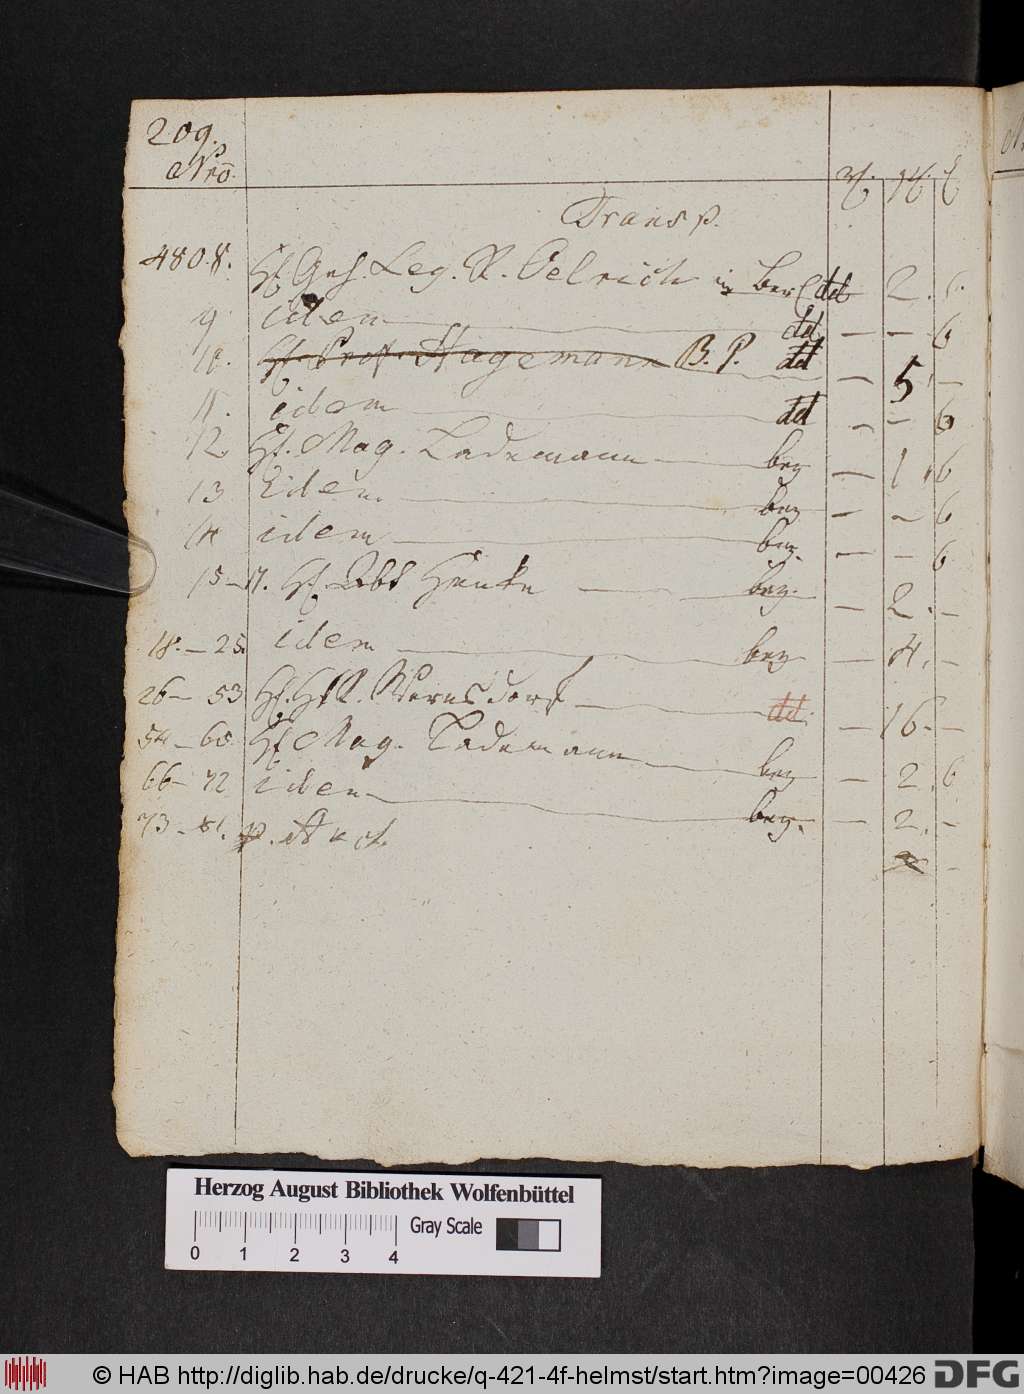 209.
Nro.
Transp.
4808. H. Geh. Leg. R. Oelrich in Berl dd 2. 6.
9 idem dd — — 6
10. H. Prof. Hagemann B. P. dd — 5 —
11. idem dd — — 6
12 H. Mag. Lademann bez — 1. 6
13 Idem bez — — 6
14 idem bez. — — 6
15–17. H. Abt Henke bez. — 2. —
18. – 25. idem bez — 4. —
26 – 53 H. HR. Wernsdorf dd. — 16. —
54 – 65 H. Mag. Lademann bez — 2 6
66 – 72 idem bez. — 2. —
73 – 81. p. Auct.
Herzog August Bibliothek Wolfenbüttel
Gray Scale
0 1 2 3 4
© HAB http://diglib.hab.de/drucke/q-421-4f-helmst/start.htm?image=00426 DFG